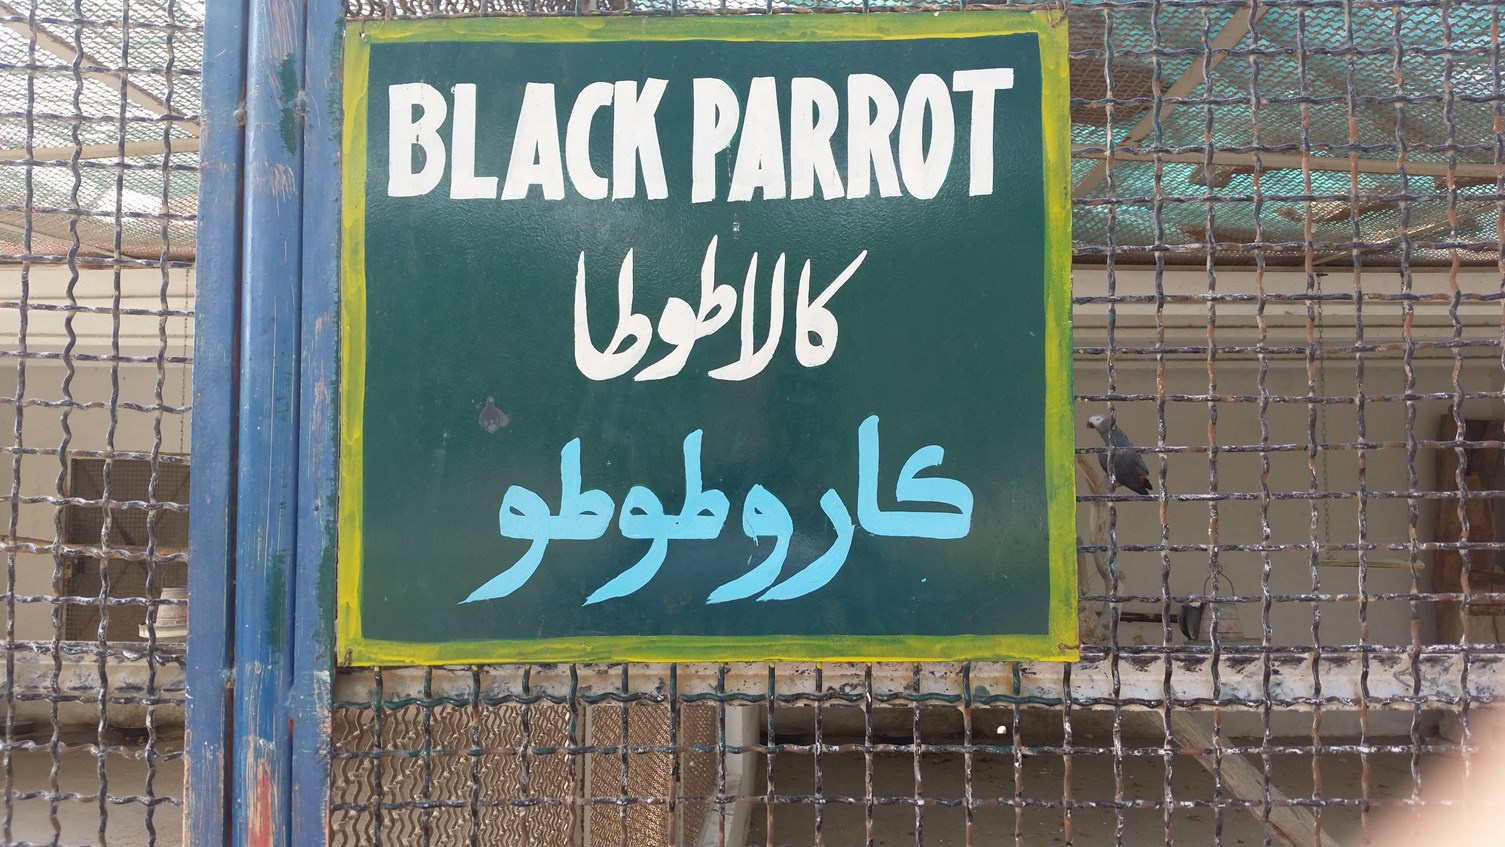 BLACK PARROT
کالا طوطا
کارو طوطو